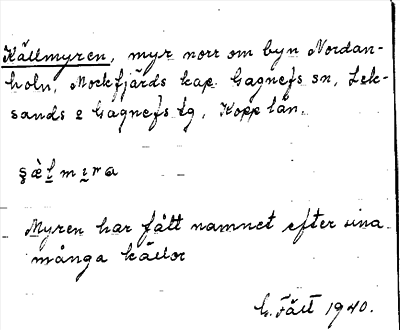 Källmyren, myr norr om byn Nordan-
holn, Mockfjärds kap. Gagnefs sn, Lek-
sands o Gagnefs tg, Kopp län.
ṣɛ̀l̥mɪra
Myren har fått namnet efter sina
många källor
G. Fält 1940.